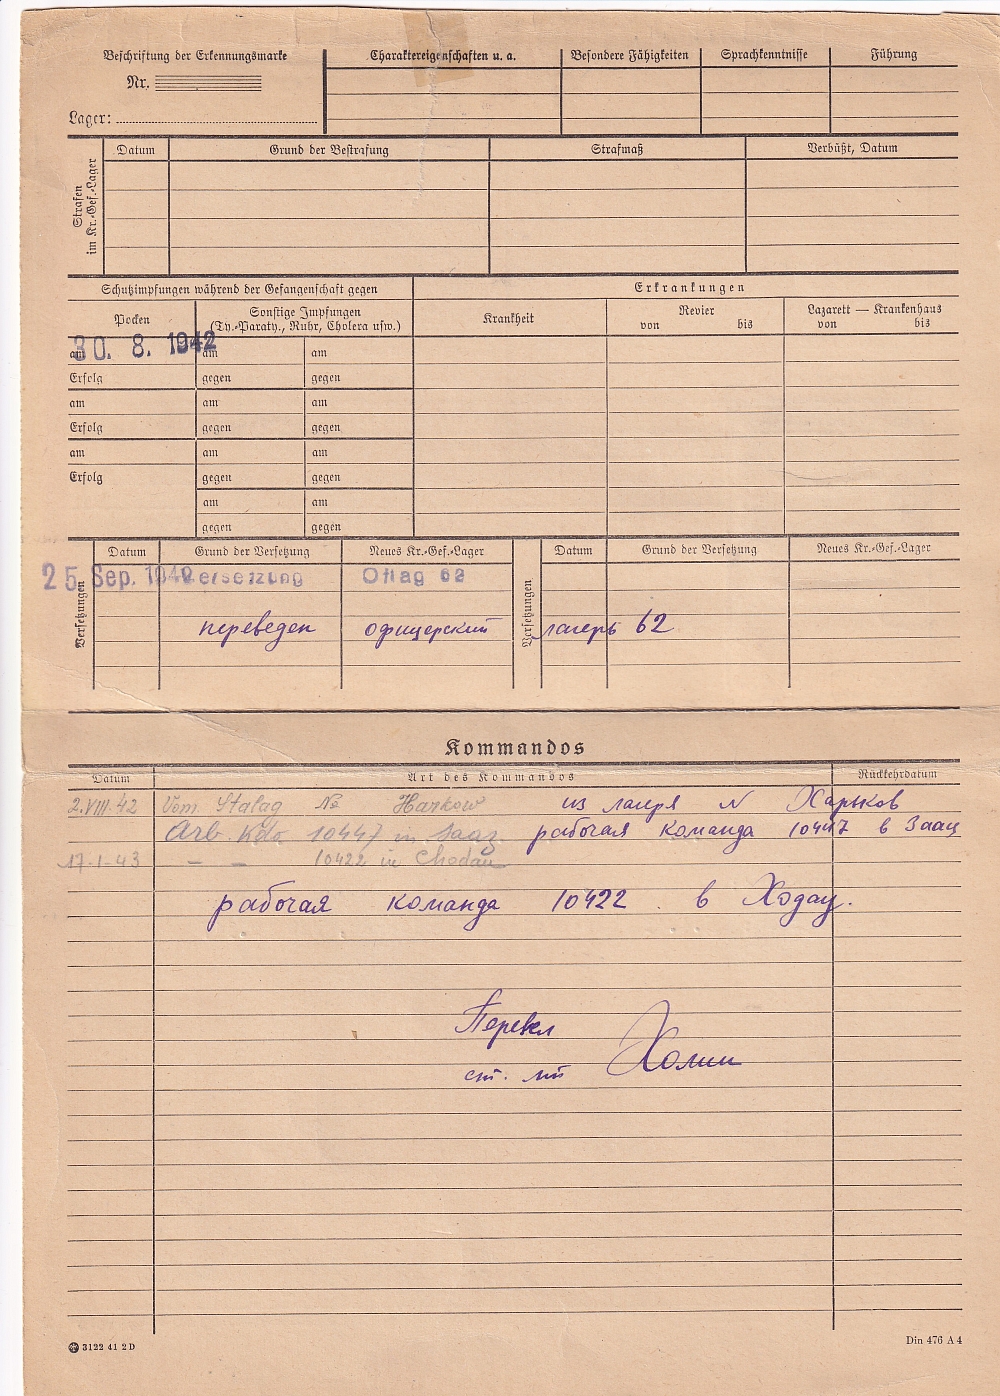 Beschriftung der Erkennungsmarke
Nr.
Lager:
Charaktereigenschaften u. a.
Besondere Fähigkeiten
Sprachkenntnisse
Führung
Strafen
im Kr.-Gef.-Lager
Datum
Grund der Bestrafung
Strafmaß
Verbüßt, Datum
Schutzimpfungen während der Gefangenschaft gegen
Erkrankungen
Pocken
Sonstige Impfungen
(Ty.-Paraty., Ruhr, Cholera usw.)
Krankheit
Revier
von bis
Lazarett — Krankenhaus
von bis
30. 8. 1942
am am am
Erfolg gegen gegen
am am am
Erfolg gegen gegen
am am am
Erfolg gegen gegen
am am
gegen gegen
Versetzungen
Datum Grund der Versetzung Neues Kr.-Gef.-Lager
Versetzungen
Datum Grund der Versetzung Neues Kr.-Gef.-Lager
25. Sep. 1942 Versetzung Oflag 62
переведен офицерский лагерь 62
Kommandos
Datum Art des Kommandos Rückkehrdatum
2.VIII.42 Vom Stalag № Harkow из лагеря N Харьков
Arb. Kdo 10447 in Saaz рабочая команда 10447 в Заац
17.1.43 — — 10422 in Chodau
рабочая команда 10422 в Ходау.
Перевел
ст. лт
3122 41 2 D
Din 476 A 4